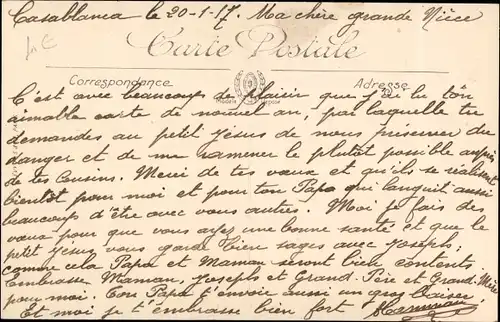 Casablanca le 20-1-17. Ma chère grande Nièce
Carte Postale
Correspondance
Adresse
C'est avec beaucoup de plaisir que j'ai lu ton
aimable carte de nouvel an, par laquelle tu
demandes au petit Jésus de nous préserver du
danger et de me ramener le plutôt possible auprès
de tes Cousins. Merci de tes vœux et qu'ils se réalisent
bientôt pour moi et pour ton Papa qui languit aussi
beaucoup d'être avec vous autres. Moi je fais des
vœux pour que vous ayez une bonne santé et que le
petit Jésus vous garde bien sages avec Joseph;
comme cela Papa et Maman seront bien contents
Embrasse Maman, Joseph et Grand-Père et Grand-Mère
pour moi. Ton Papa t'envoie aussi un gros baiser.
Et moi je t'embrasse bien fort